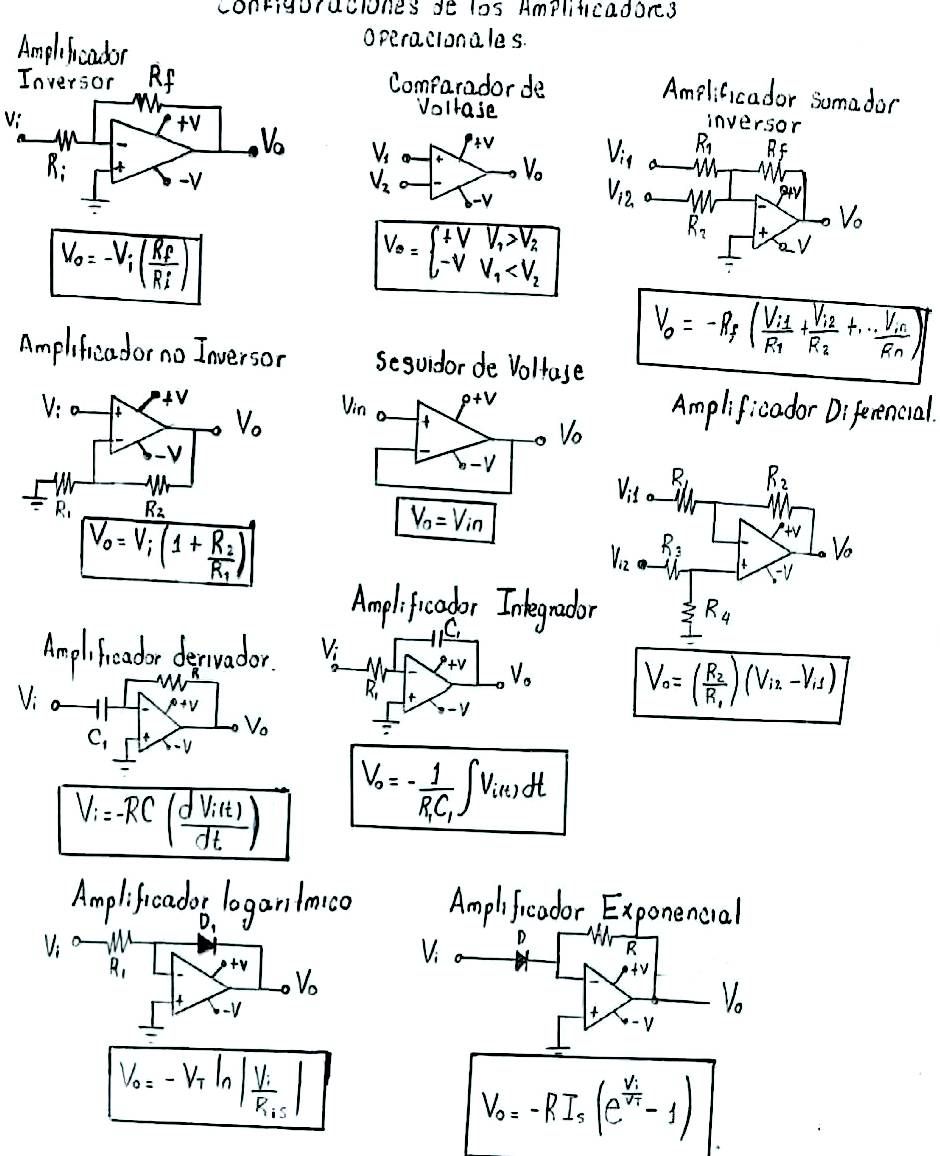 Configuraciones de los Amplificadores
Operacionales.
Amplificador
Inversor
Rf
Vi
Ri
-
+
+V
-V
Vo
Vo = -Vi (Rf/Ri)
Comparador de
Voltaje
V1
V2
+
-
+V
-V
Vo
Vo = { +V V1>V2
-V V1<V2
Amplificador Sumador
inversor
Vi1
R1
Rf
Vi2
R2
-
+
+V
-V
Vo
Vo = -Rf (Vi1/R1 + Vi2/R2 + ... Vin/Rn)
Amplificador no Inversor
Vi
+
-
+V
-V
Vo
R1
R2
Vo = Vi (1 + R2/R1)
Seguidor de Voltaje
Vin
+
-
+V
-V
Vo
Vo = Vin
Amplificador Diferencial.
Vi1
R1
R2
Vi2
R3
-
+
+V
-V
Vo
R4
Vo = (R2/R1) (Vi2 - Vi1)
Amplificador derivador.
Vi
C1
R
-
+
+V
-V
Vo
Vi = -RC (d Vi(t)/dt)
Amplificador Integrador
Vi
R1
C1
-
+
+V
-V
Vo
Vo = - 1/R1C1 ∫ Vi(t) dt
Amplificador logarítmico
Vi
R1
D1
-
+
+V
-V
Vo
Vo = - VT ln |Vi/Ris|
Amplificador Exponencial
Vi
D
R
-
+
+V
-V
Vo
Vo = -R Is (e^(Vi/VT) - 1)